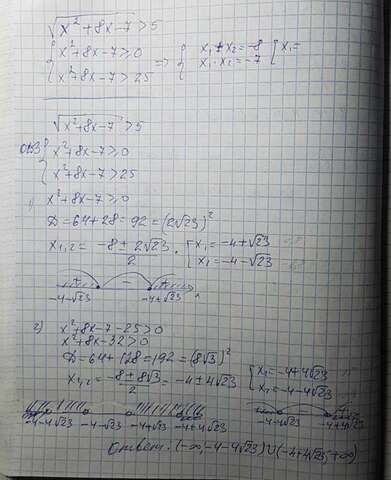 √x²+8x-7 > 5
{ x²+8x-7 ≥ 0
x²+8x-7 > 25 => { x₁+x₂ = -8
x₁·x₂ = -7 [ x₁=
√x²+8x-7 > 5
ОДЗ { x²+8x-7 ≥ 0
x²+8x-7 > 25
1) x²+8x-7 ≥ 0
D = 64+28 = 92 = (2√23)²
x₁,₂ = (-8±2√23)/2 . [ x₁ = -4+√23
x₁ = -4-√23
+ - +
-4-√23 -4+√23 x
2) x²+8x-7-25>0
x²+8x-32>0
D = 64+128 = 192 = (8√3)²
x₁,₂ = (-8±8√23)/2 = -4±4√23 [ x₁ = -4+4√23
x₂ = -4-4√23
-4-4√23 -4-√23 -4+√23 -4+4√23 -4-4√23 -4+4√23
Ответ: (-∞;-4-4√23)∪(-4+4√23;+∞)